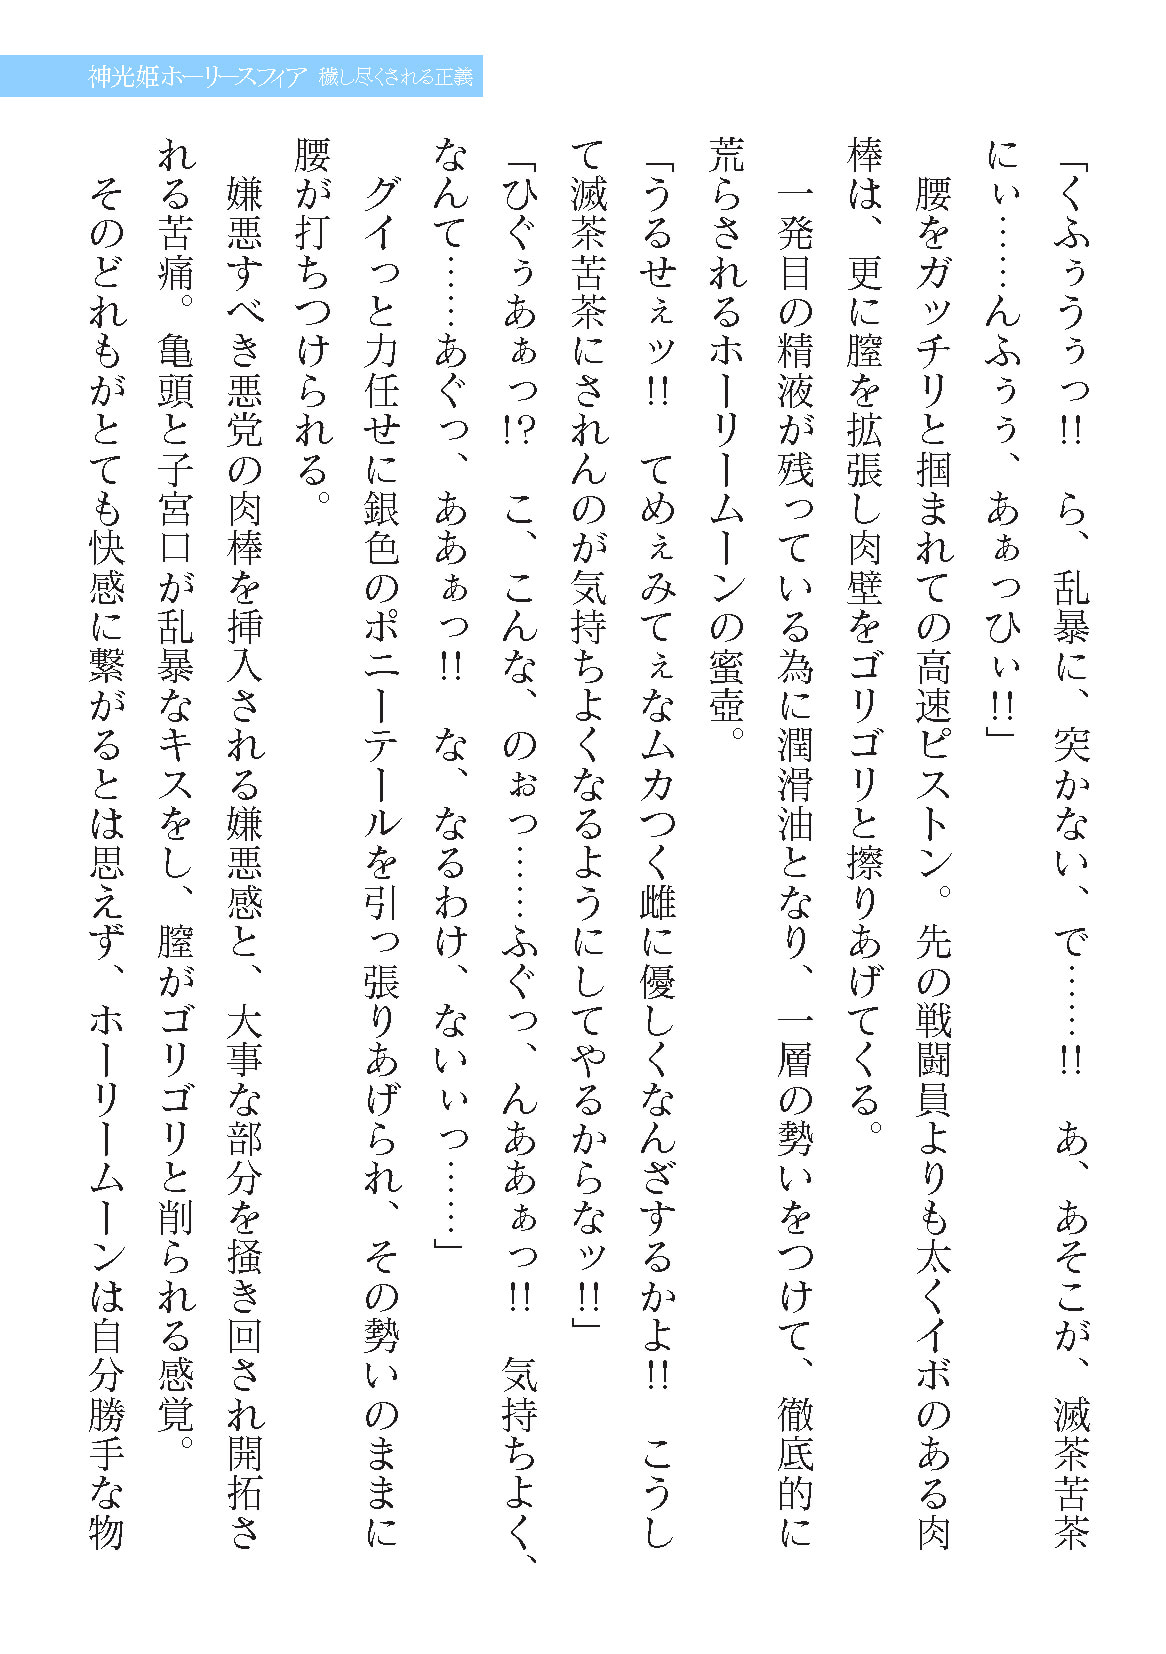 神光姫ホーリースフィア 穢し尽くされる正義
「くふぅうぅっ!! ら、乱暴に、突かない、で……!! あ、あそこが、滅茶苦茶
にぃ……んふぅぅ、あぁっひぃ!!」
腰をガッチリと掴まれての高速ピストン。先の戦闘員よりも太くイボのある肉
棒は、更に膣を拡張し肉壁をゴリゴリと擦りあげてくる。
一発目の精液が残っている為に潤滑油となり、一層の勢いをつけて、徹底的に
荒らされるホーリームーンの蜜壺。
「うるせぇッ!! てめぇみてぇなムカつく雌に優しくなんざするかよ!! こうし
て滅茶苦茶にされんのが気持ちよくなるようにしてやるからなッ!!」
「ひぐぅあぁっ!? こ、こんな、のぉっ……ふぐっ、んああぁっ!! 気持ちよく、
なんて……あぐっ、ああぁっ!! な、なるわけ、ないぃっ……」
グイっと力任せに銀色のポニーテールを引っ張りあげられ、その勢いのままに
腰が打ちつけられる。
嫌悪すべき悪党の肉棒を挿入される嫌悪感と、大事な部分を掻き回され開拓さ
れる苦痛。亀頭と子宮口が乱暴なキスをし、膣がゴリゴリと削られる感覚。
そのどれもがとても快感に繋がるとは思えず、ホーリームーンは自分勝手な物